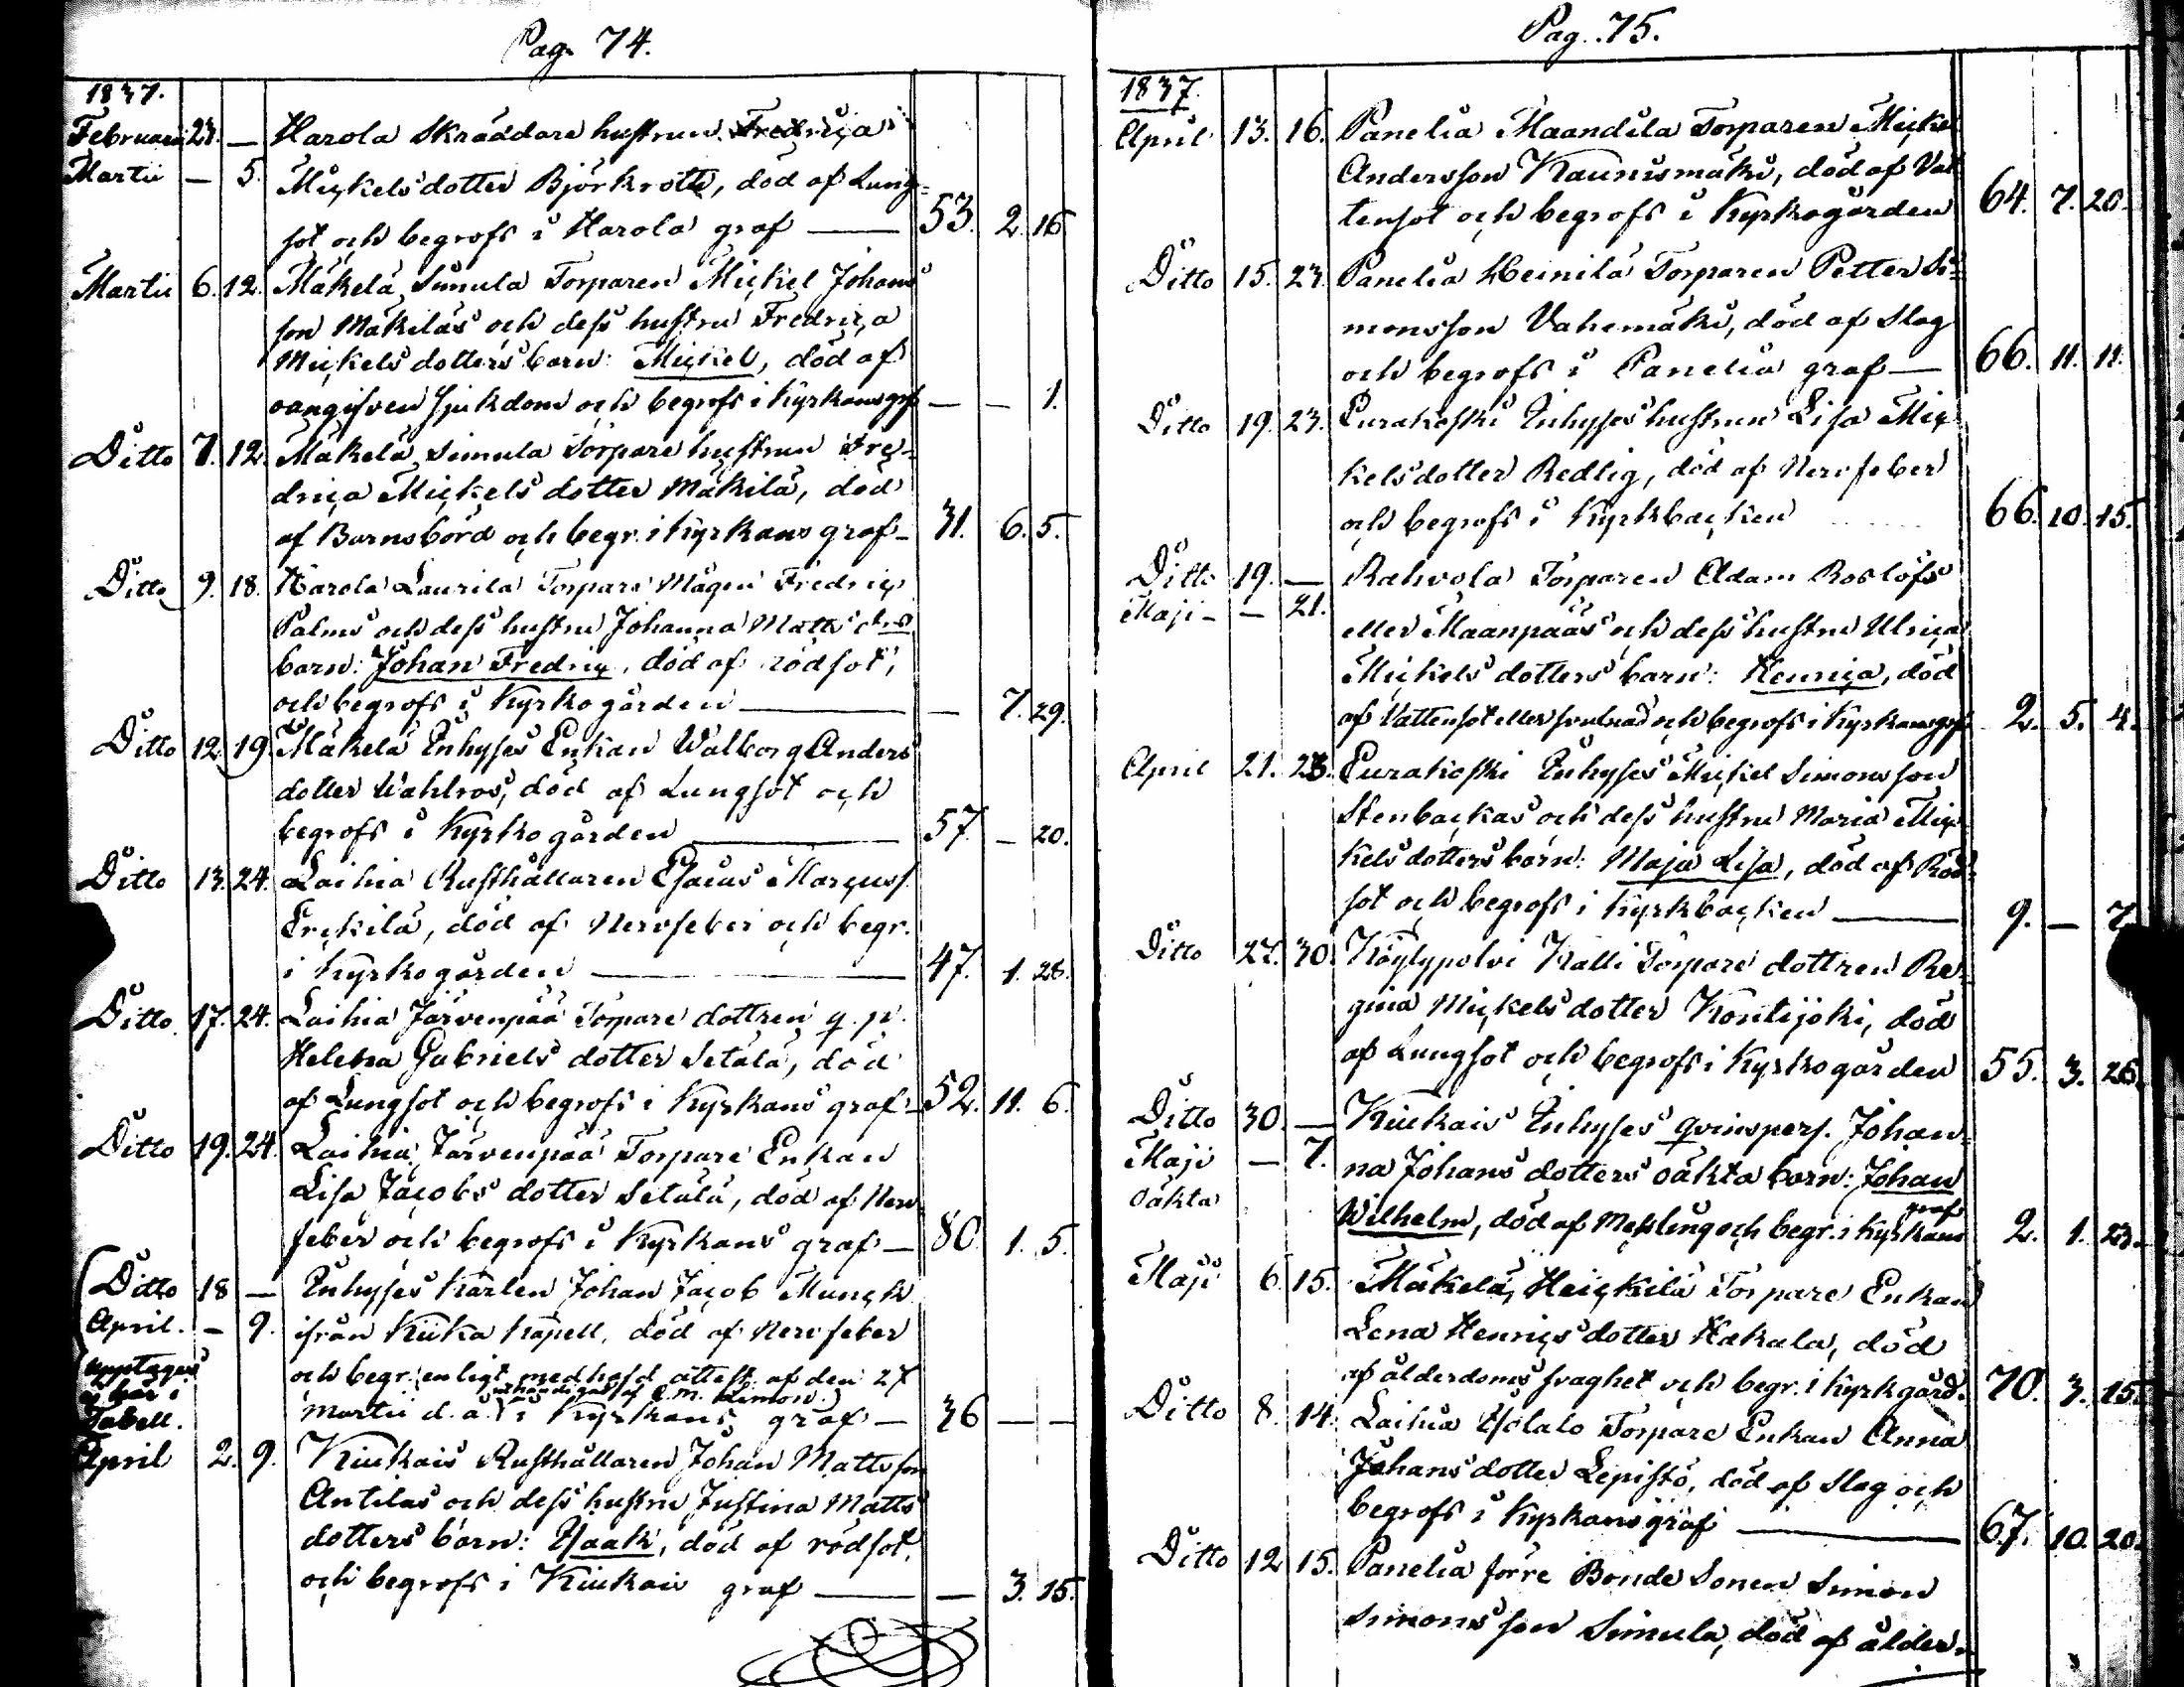 Pag. 74.
1837.
Februarii 23. — Harola Skräddare hustrun Fredrica
Martii — 5. Mickelsdotter Björkroth, död af Lung-
sot och begrofs i Harola graf — 53. 2. 16
Martii 6. 12. Mäkelä Simula Torparen Mickel Johans
son Mäkiläs och dess hustru Fredrica
Mickelsdotters barn: Mickel, död af
oangifven sjukdom och begrofs i Kyrkansgraf — — 1.
Ditto 7. 12. Mäkelä Simula Torpare hustrun Fre-
drica Mickelsdotter Mäkilä, död
af Barnsbörd och begr. i Kyrkans graf — 31. 6. 5.
Ditto 9. 18. Harola Laurila Torpare Mågen Fredric
Palms och dess hustru Johanna Matts drs
barn: Johan Fredric, död af rödsot,
och begrofs i Kyrkogården — — 7. 29.
Ditto 12. 19. Mäkelä Inhyses Enkan Walborg Anders
dotter Wahlros, död af Lungsot och
begrofs i Kyrkogården — 57. — 20.
Ditto 13. 24. Laihia Rusthållaren Esaias Marcuss.
Erckilä, död af Nervfeber och begr.
i Kyrkogården — 47. 1. 28.
Ditto 17. 24. Laihia Järvenpää Torpare dottren q. p.
Helena Gabriels dotter Setälä, död
af Lungsot och begrofs i Kyrkans graf — 52. 11. 6.
Ditto 19. 24. Laihia Järvenpää Torpare Enkan
Lisa Jacobs dotter Setälä, död af Nerv
feber och begrofs i Kyrkans graf — 80. 1. 5.
Ditto 18 — Inhyses Karlen Johan Jacob Munck
April. — 9. ifrån Kiuka Kapell, död af Nervfeber
upptages
och begr. enligt medhafd attest af den 27
ej här i
Tabell. Martii d. å. i Kyrkans graf — 36 — —
April 2. 9. Kiukais Rusthållaren Johan Mattsson
Antilas och dess hustru Justina Matts
dotters barn: Isaak, död af rödsot,
och begrofs i Kiukais graf — — 3. 15.
Pag. 75.
1837.
April 13. 16. Panelia Maandila Torparen Mickel
Andersson Kaunismäki, död af Vat
tensot och begrofs i Kyrkogården 64. 7. 20.
Ditto 15. 23. Panelia Heinilä Torparen Petter Si-
monsson Vahemäki, död af Slag
och begrofs i Panelia graf — 66. 11. 11.
Ditto 19. 23. Eurakoski Inhyses hustrun Lisa Mic
kelsdotter Redlig, död af Nervfeber
och begrofs i Kyrkbacken 66. 10. 15.
Ditto 19. — Rahvola Torparen Adam Roslöfs
Maji — — 21. eller Maanpääs och dess hustru Ulrica
Mickels dotters barn: Henrica, död
af Vattensot eller svulnad och begrofs i Kyrkansgraf 2. 5. 4.
April 21. 23. Eurakoski Inhyses Mickel Simonsson
Stenbackas och dess hustru Maria Mic
kelsdotters barn: Maja Lisa, död af Röd-
sot och begrofs i Kyrkbacken — 9. — 7.
Ditto 27. 30. Köylypolvi Kalli Torpare dottren Re-
gina Mickelsdotter Kontijoki, död
af Lungsot och begrofs i Kyrkogården 55. 3. 26.
Ditto 30. — Kiukais Inhyses qvinspers. Johan-
Maji — 7. na Johans dotters oäkta barn: Johan
oäkta
graf
Wilhelm, död af Messling och begr. i Kyrkans 2. 1. 23.
Maji 6. 15. Mäkelä, Heickilä Torpare Enkan
Lena Henrics dotter Hakala, död
af ålderdoms svaghet och begr. i Kyrkgård. 70. 3. 15.
Ditto 8. 14. Laihia Isotalo Torpare Enkan Anna
Johansdotter Lepistö, död af Slag och
begrofs i Kyrkansgraf — 67. 10. 20.
Ditto 12 15. Panelia förre Bonde Sonen Simon
Simonsson Simula, död af ålder-